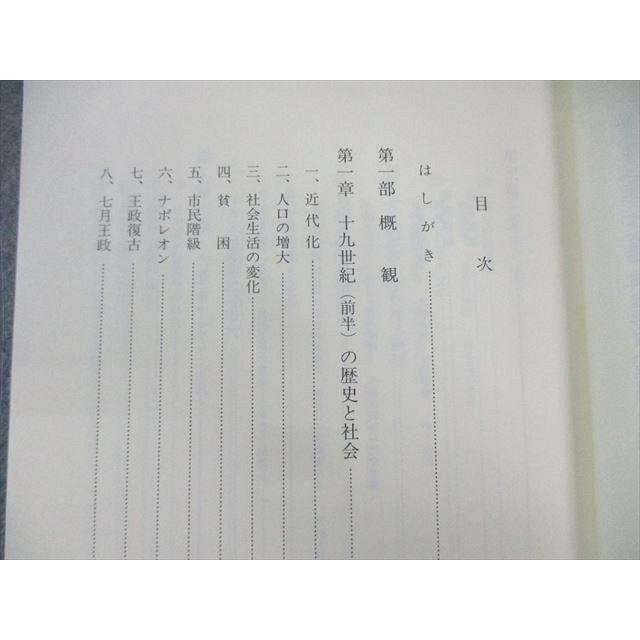 目次
はしがき
第一部 概観
第一章 十九世紀（前半）の歴史と社会
一、近代化
二、人口の増大
三、社会生活の変化
四、貧困
五、市民階級
六、ナポレオン
七、王政復古
八、七月王政